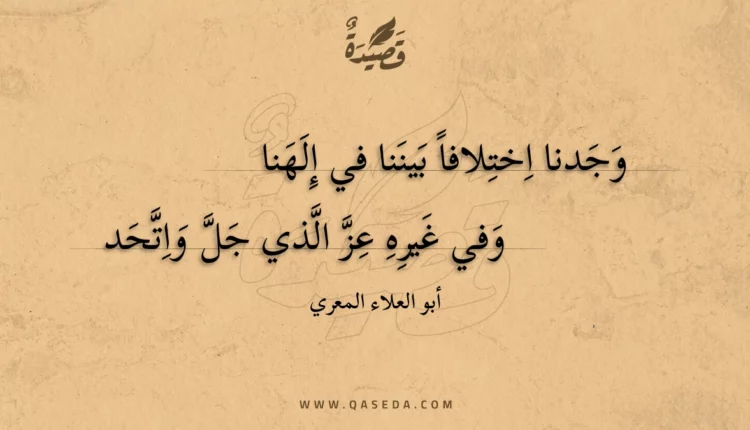 قَصِيْدَةٌ
وَجَدنا اِختِلافاً بَينَنا في إِلَهَنا
وَفي غَيرِهِ عِزَّ الَّذي جَلَّ وَاِتَّحَد
أبو العلاء المعري
WWW.QASEDA.COM